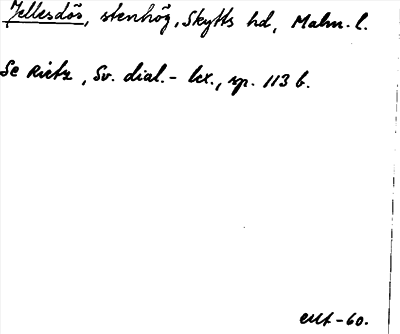 Jellesdös, stenhög, Skytts hd, Malm. l.
Se Rietz, Sv. dial.-lex., sp. 113 b.
-60.